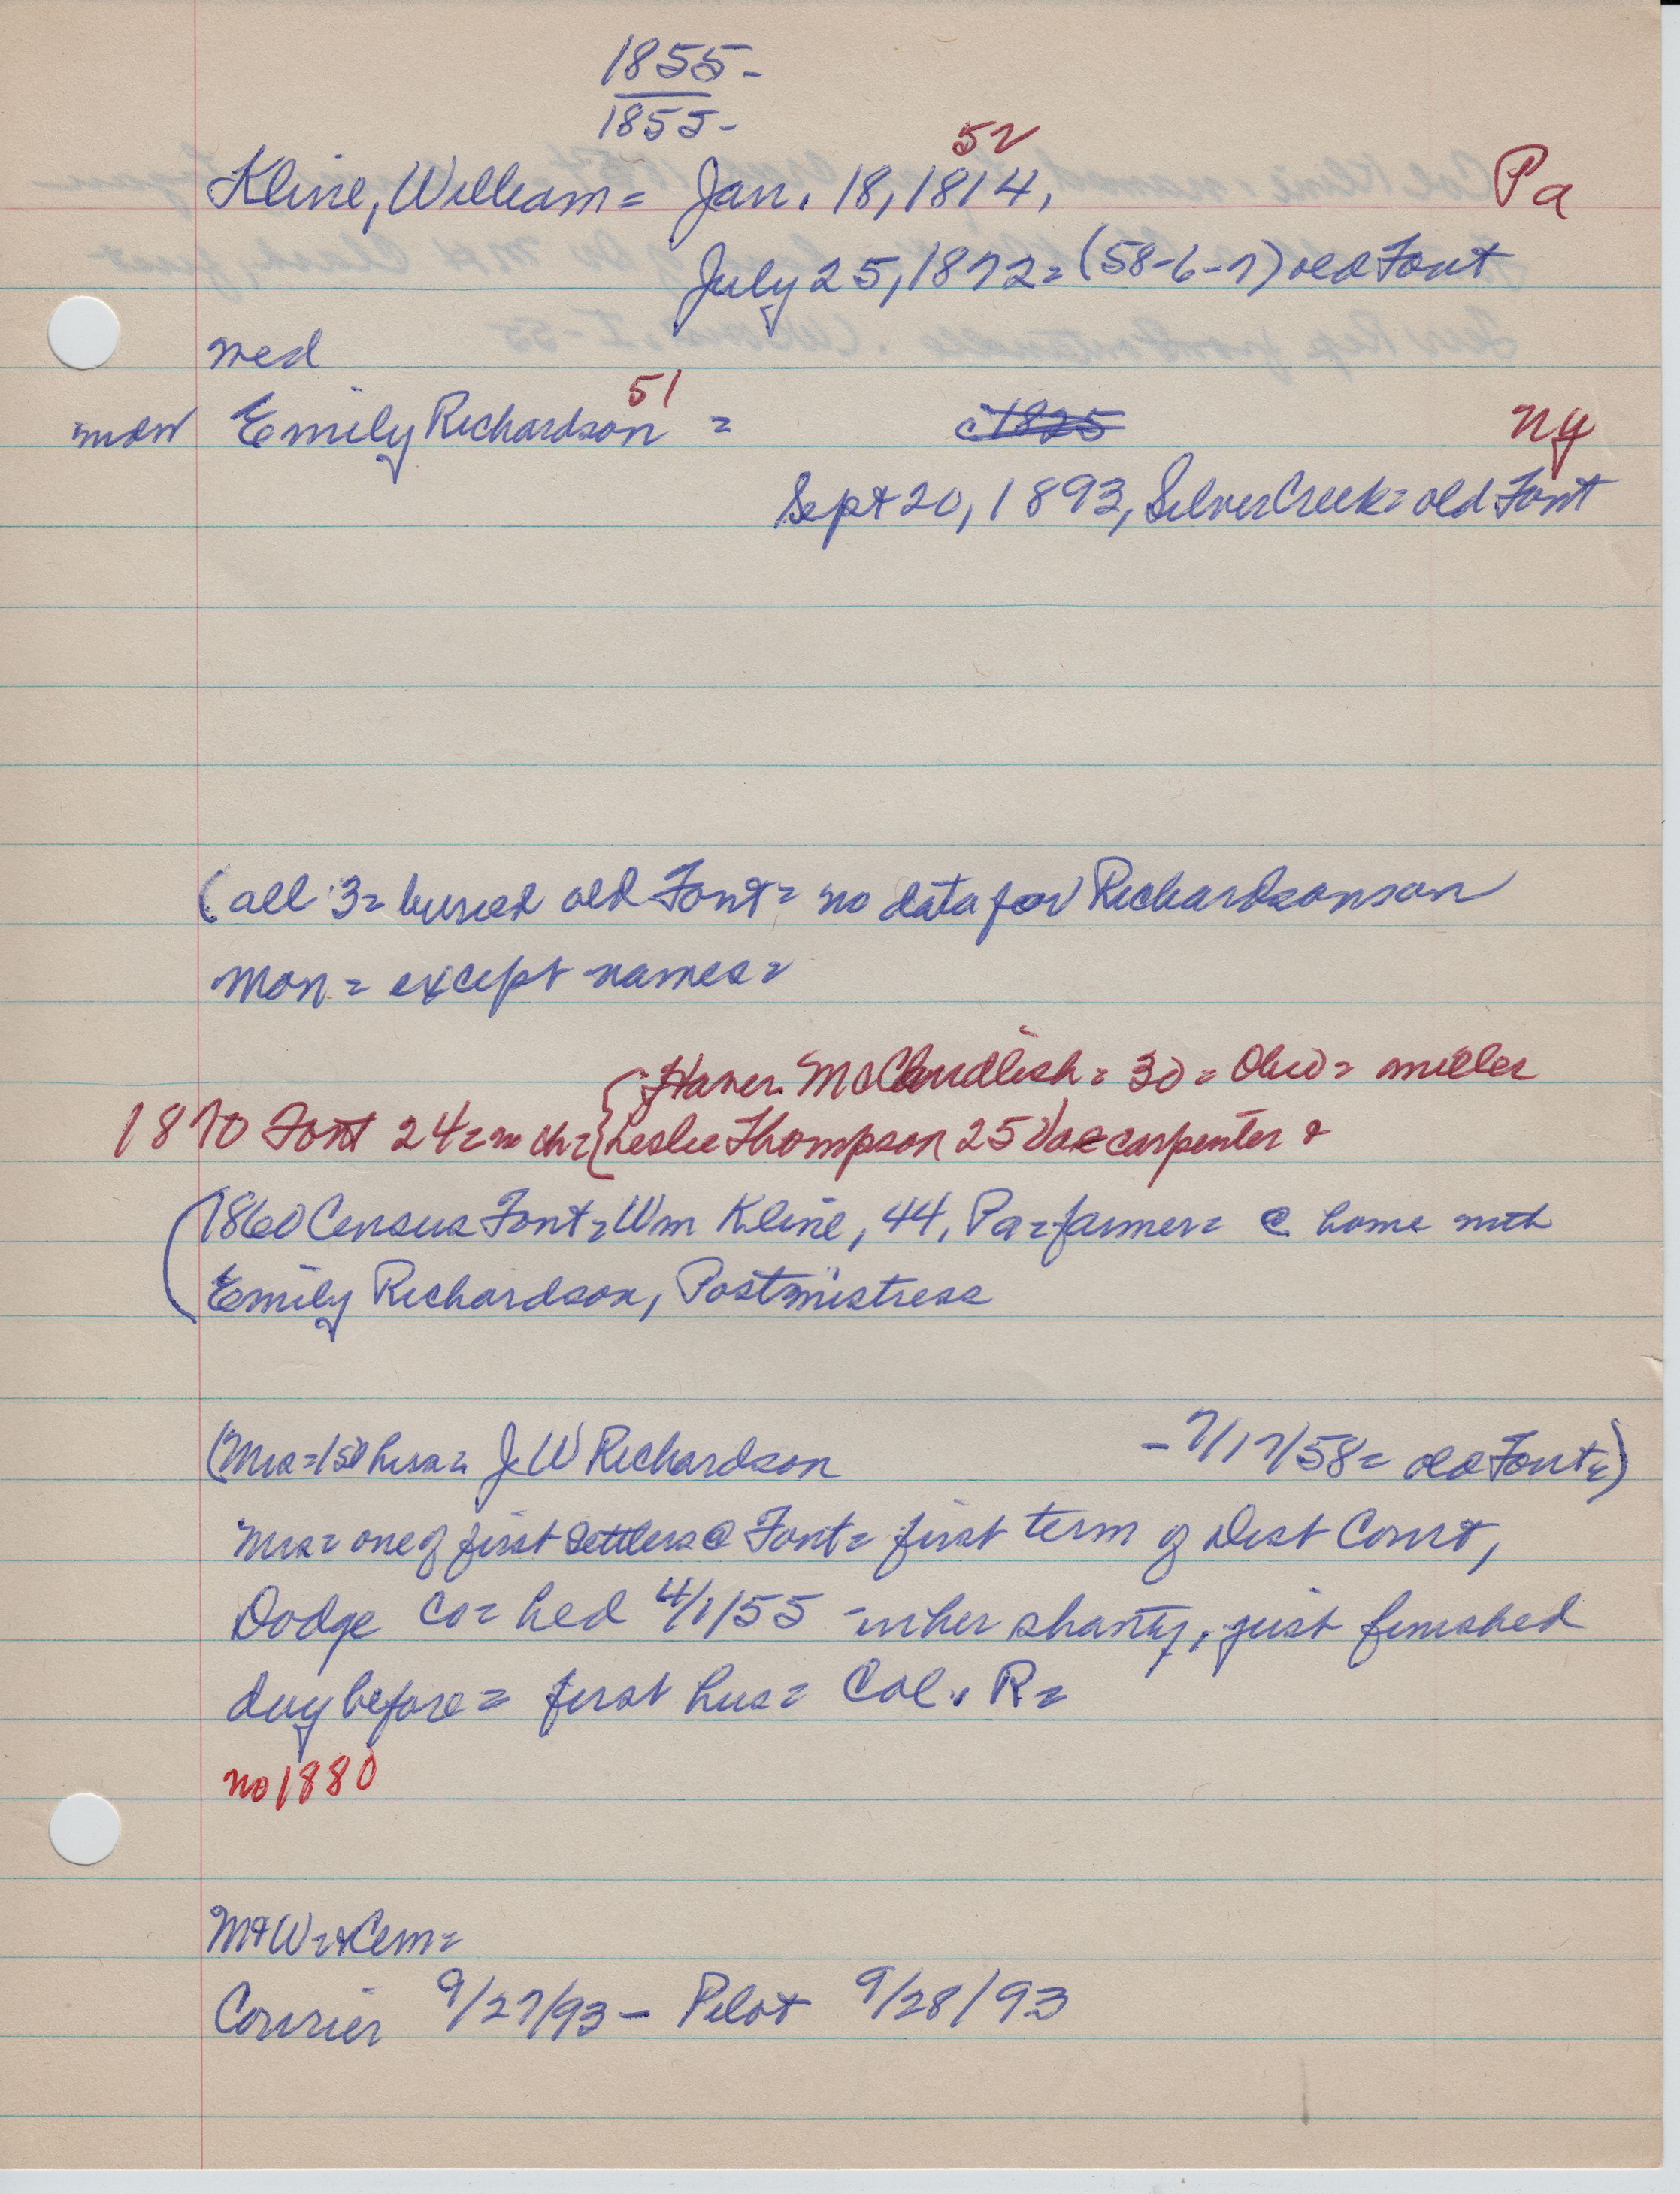 1855-
1855-
52
Kline, William = Jan. 18, 1814, Pa
July 25, 1872 = (58-6-7) old Font
wed
51
wdw Emily Richardson = c 1825 NY
Sept 20, 1893, Silver Creek = old Font
(all 3 = buried old Font = no data for Richardsonson
Mon = except names =
McCandlish = 30 = Ohio = miller
1870 Font 24 = no ch = Leslie Thompson 25 Va = carpenter
(1860 Census Font = Wm Kline, 44, Pa = farmer = @ home with
Emily Richardson, Postmistress
(Mrs = 1st hus = J W Richardson - 7/17/58 = old Font =)
Mrs = one of first settlers @ Font = first term of Dist Court,
Dodge Co = hed 4/1/55 - in her shanty, just finished
day before = first hus = Col. R =
no 1880
M+W = + Cem =
Courier 9/27/93 - Pilot 9/28/93